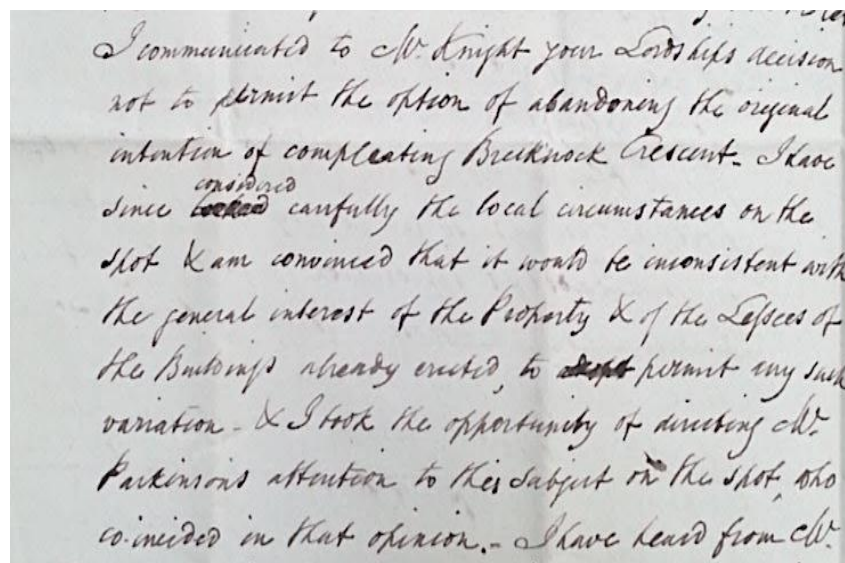 I communicated to Mr. Knight your Lordships decision
not to permit the option of abandoning the original
intention of compleating Brecknock Crescent - I have
considered
since looked carefully the local circumstances on the
spot & am convinced that it would be inconsistent with
the general interest of the Property & of the Lessees of
the Buildings already erected, to adopt permit any such
variation - & I took the opportunity of directing Mr.
Parkinsons attention to this subject on the spot, who
co-incided in that opinion. - I have heard from Mr.